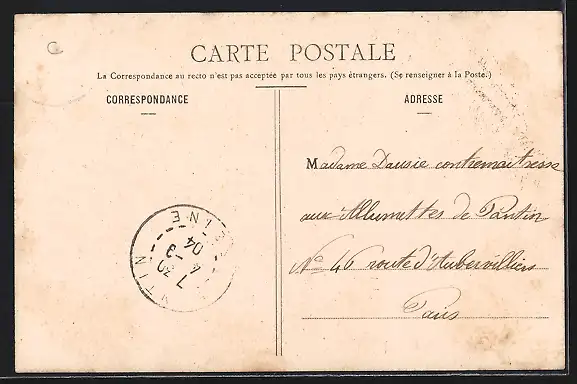 CARTE POSTALE
La Correspondance au recto n'est pas acceptée par tous les pays étrangers. (Se renseigner à la Poste.)
CORRESPONDANCE
ADRESSE
Madame Dausie contremaitresse
aux Allumettes de Pantin
N° 46 route d'Aubervilliers
Paris
SEINE
7 30
4 -3
04